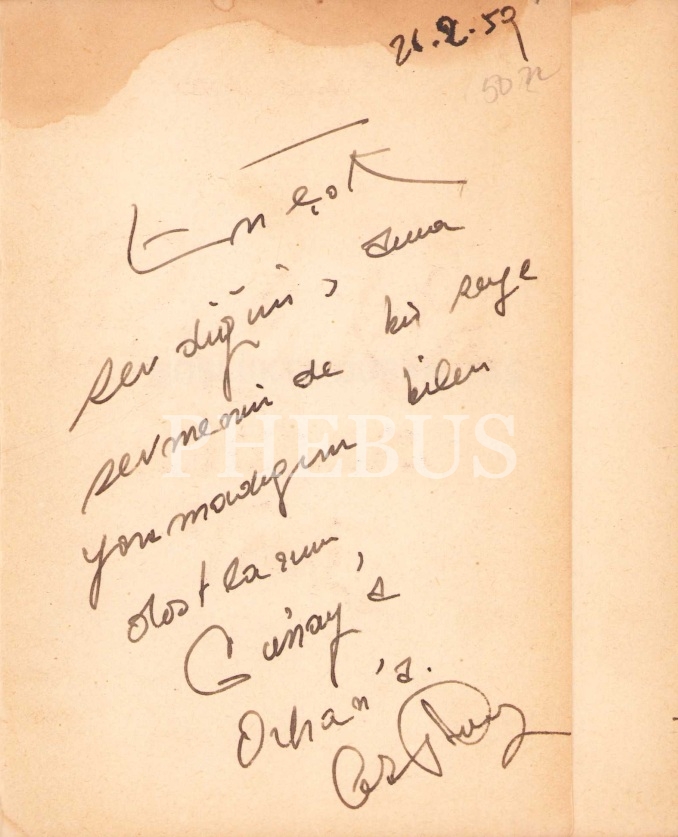 26.2.59
50
En çok
sevdiğim, ama
sevmemin de bir şeye
yaramadığını bilen
dostlarım,
Günay'a
Orhan'a.
PHEBUS